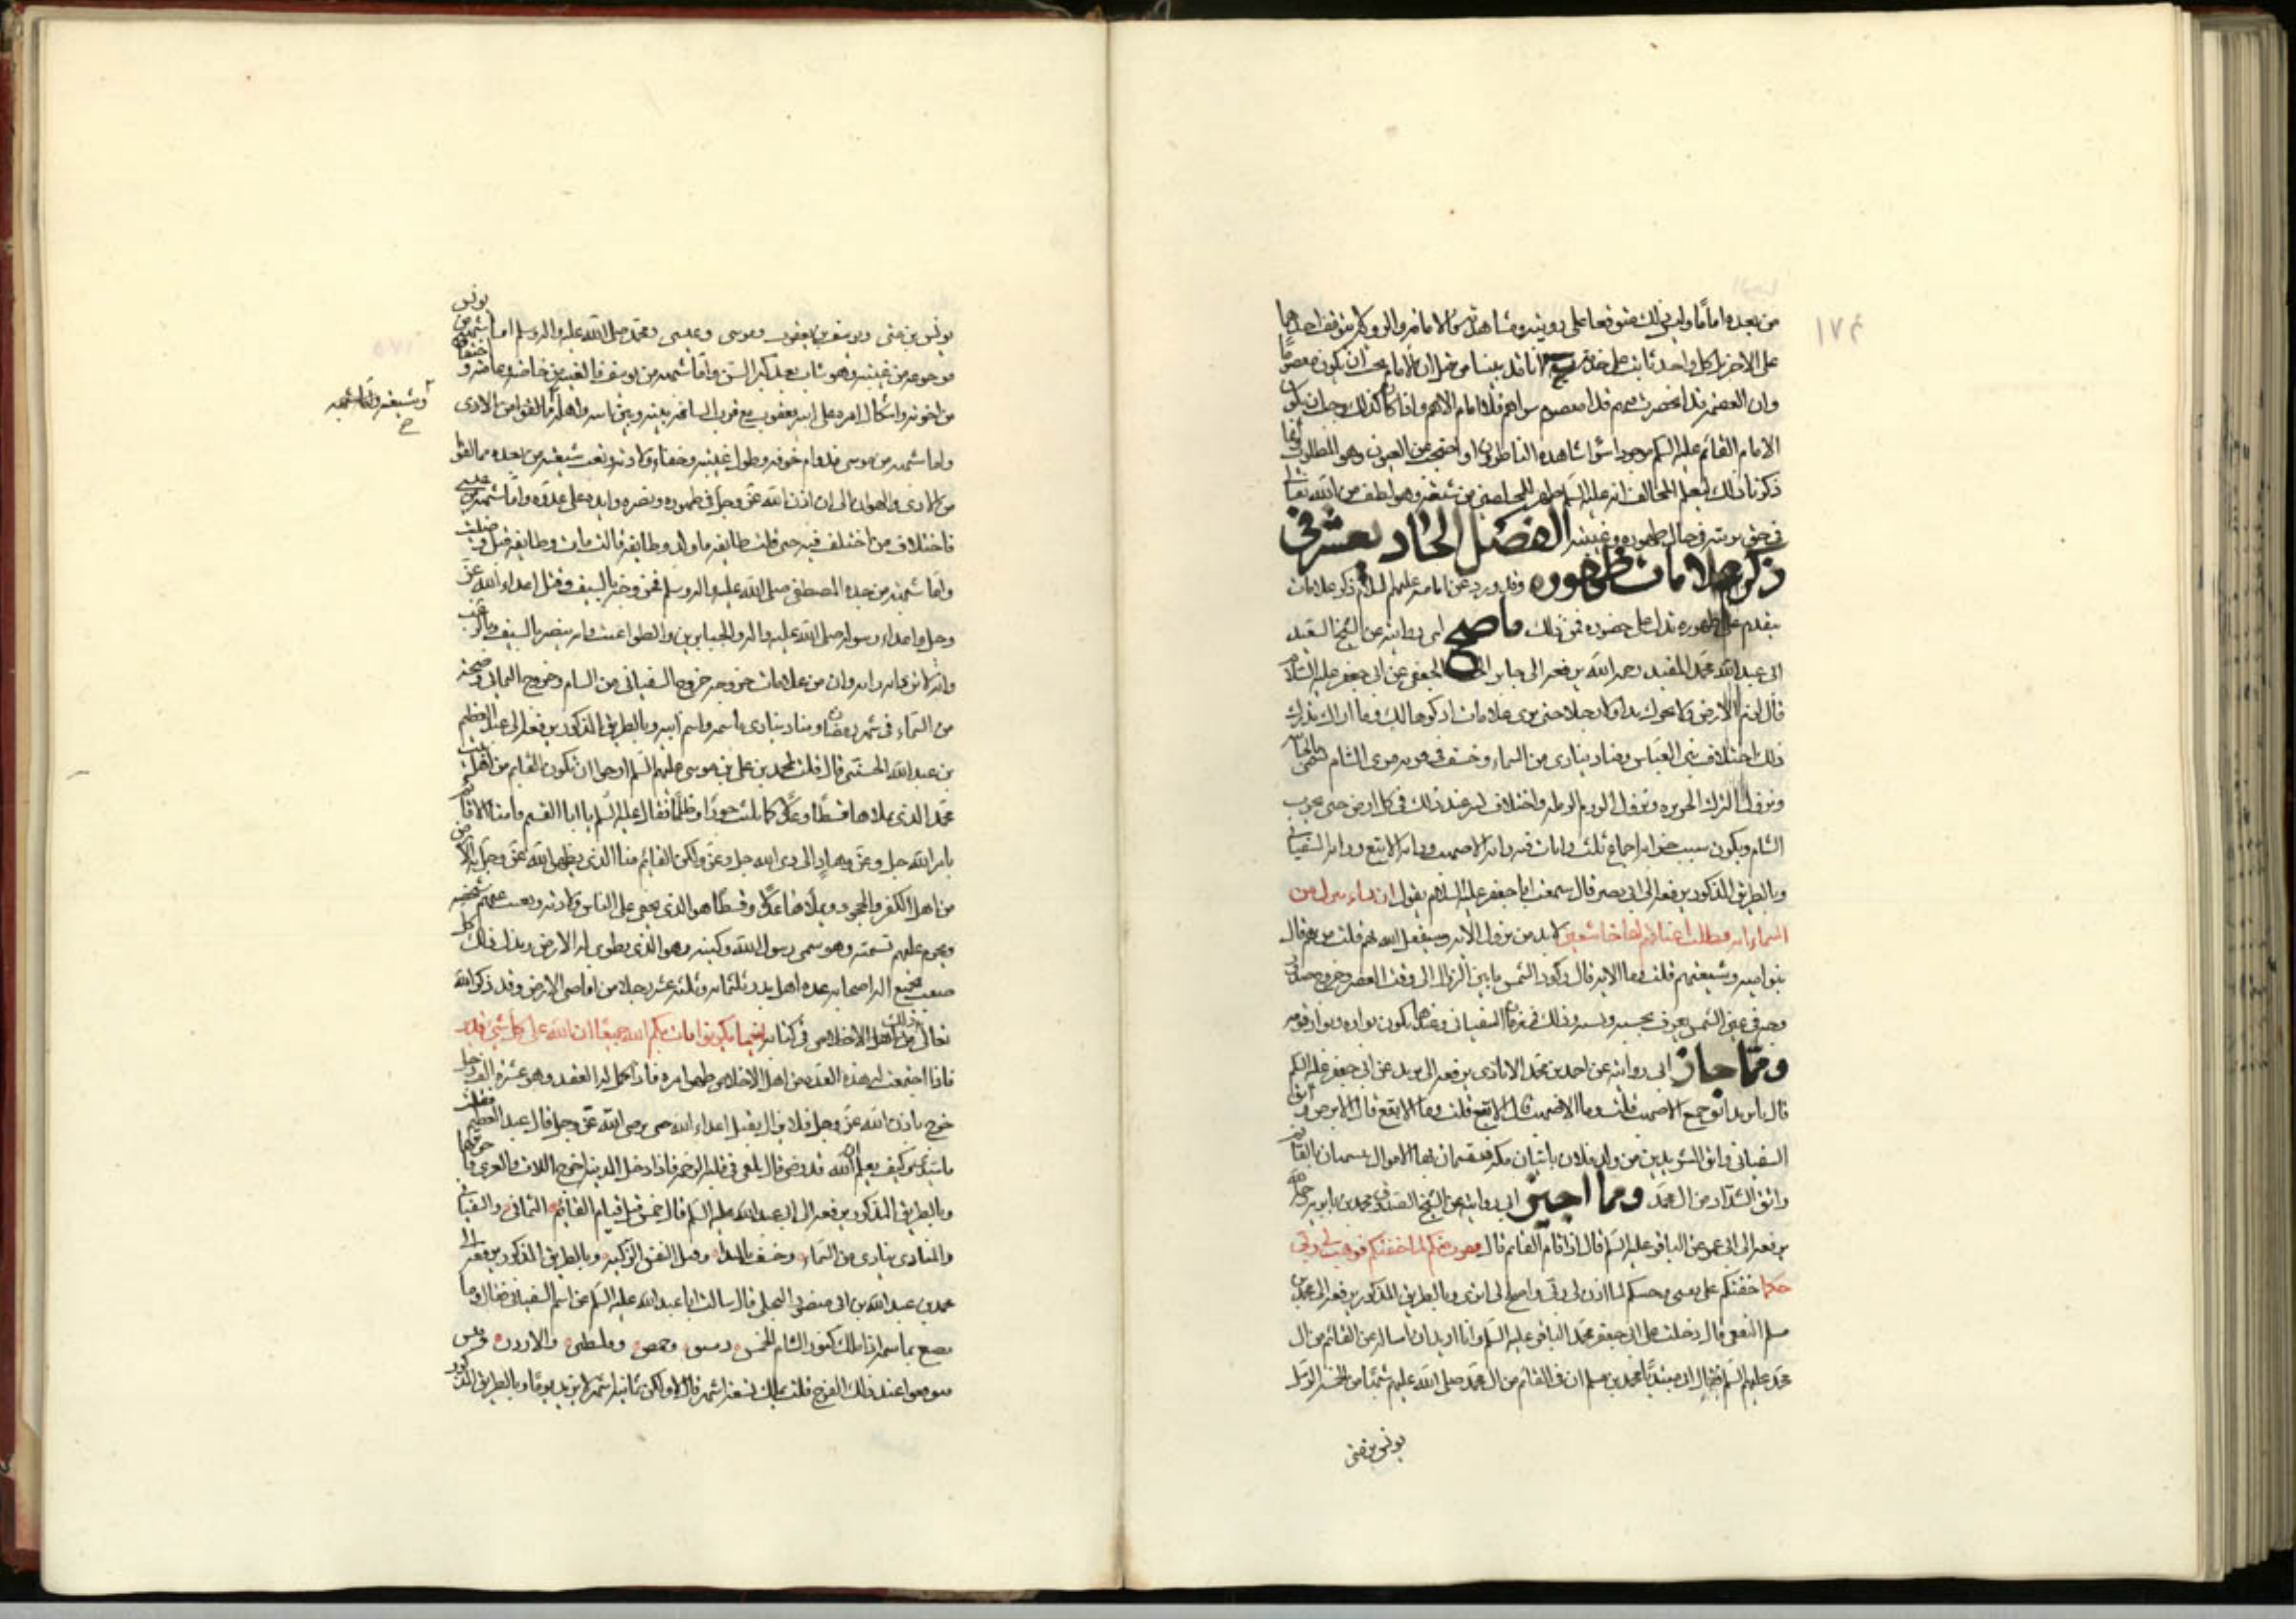 ١٧٤
من بعده اماما وليس ذلك متوقفا على رويته ومشاهدته
على الاخر بل كل واحد ثابت على
وان العصمة قد انحصرت فيهم فلا معصوم سواهم فلا امام الاهم واذا كان كذلك وجب ان يكون
الامام القائم عليه السلم موجودا سواء شاهده الناظرون او احتجب عن العيون وهو المطلوب
ذكرنا ذلك ليعلم المخالف انه عليه السلم من شيعته وهو لطف من الله تعالى
في حق بريته في حال ظهوره وغيبته الفصل الحادي عشر في
ذكر علامات ظهوره وقد ورد عن ابائه عليهم السلام ذكر علامات
يتقدم على ظهوره تدل على حضوره فمن ذلك ما صح لى روايته عن الشيخ السعيد
ابى عبد الله محمد المفيد رحمه الله يرفعه الى جابر الجعفى عن ابى جعفر عليه السلام
قال الزم الارض ولا تحرك يدا ولا رجلا حتى ترى علامات اذكرها لك وما اراك تدرك
ذلك اختلاف بنى العباس ومناد ينادى من السماء وخسف فى قرية من قرى الشام تسمى بالجابيه
ونزول الترك الجزيره ونزول الروم الرمله واختلاف كثير عند ذلك فى كل ارض حتى تخرب
الشام ويكون سبب خرابها اجتماع ثلث رايات فيه راية الاصهب وراية الابقع وراية السفيانى
وبالطريق المذكور يرفعه الى ابى بصير قال سمعت ابا جعفر عليه السلام يقول ان نشاء ننزل من
السماء اية فظلت اعناقهم لها خاضعين لابد من نزول الاية وسيفعل الله بهم قلت من هم قال
بنو اميه وشيعتهم قلت وما الاية قال ركود الشمس ما بين الزوال الى وقت العصر وخروج صدر
ووجه فى عين الشمس يعرف بحسبه ونسبه وذلك فى زمان السفيانى وعندها يكون بواره وبوار قومه
ومما جاز لى روايته عن احمد بن محمد الايادى يرفعه الى بريد عن ابى جعفر عليه السلم
قال يا بريد اتق جمع الاصهب قلت وما الاصهب قال الابقع قلت وما الابقع قال الابرص واتق
السفيانى واتق الشريدين من ولد فلان ياتيان مكة يقسمان بها الاموال يتشبهان بالقائم
واتق الشذاذ من ال محمد ومما اجيز لى روايته عن الشيخ الصدوق محمد بن بابويه رحمه الله
يرفعه الى عن الباقر عليه السلم قال اذا قام القائم قال ففررت منكم لما خفتكم فوهب لى ربى
حكما خفتكم على نفسى وجئتكم لما اذن لى ربى واصلح لى امرى وبالطريق المذكور يرفعه الى محمد بن
مسلم الثقفى قال دخلت على ابى جعفر محمد الباقر عليه السلم وانا اريد ان اساله عن القائم من ال
محمد عليهم السلم فقال لى مبتديا يا محمد بن مسلم ان فى القائم من ال محمد صلى الله عليهم شبها من الخمسة الرسل
يونس بن متى
يونس بن متى ويوسف بن يعقوب وموسى وعيسى ومحمد صلى الله عليه واله وسلم اما شبهه من يونس
فرجوعه من غيبته وهو شاب بعد كبر السن واما شبهه من يوسف فالغيبة من خاصته وعامته واختفاؤه
من اخوته واشكال امره على ابيه يعقوب مع قرب المسافة بينه وبين اهله
وشيعته واما شبهه
واما شبهه من موسى فدوام خوفه وطول غيبته وخفاء ولادته وتعب شيعته من بعده مما لقوا
من الاذى والهوان الى ان اذن الله عز وجل فى ظهوره ونصره وايده على عدوه واما شبهه من عيسى
فاختلاف من اختلف فيه حتى قالت طايفة ما ولد وطايفة قالت مات وطايفة قتل وصلب
واما شبهه من جده المصطفى صلى الله عليه واله وسلم فمن خروجه بالسيف وقتل اعداء الله عز
وجل واعداء رسوله صلى الله عليه واله والجبارين والطواغيت وانه ينصر بالسيف وبالرعب
وانه لا ترد له راية وان من علامات خروجه خروج السفيانى من الشام وخروج اليمانى وصيحة
من السماء فى شهر رمضان ومناد ينادى باسمه واسم ابيه وبالطريق المذكور يرفعه الى عبد العظيم
بن عبد الله الحسنى قال قلت لمحمد بن على بن موسى عليهم السلم ارجو ان تكون القائم من اهل بيت
محمد الذى يملاها قسطا وعدلا كما ملئت جورا وظلما فقال عليه السلم يا ابا القسم ما منا الا قائم
بامر الله جل وعز وهاد الى دين الله جل وعز ولكن القائم منا الذى يطهر الله عز وجل به الارض
من اهل الكفر والجحود ويملأها عدلا وقسطا هو الذى يخفى على الناس ولادته ويغيب عنهم شخصه
ويحرم عليهم تسميته وهو سمى رسول الله وكنيه وهو الذى يطوى له الارض ويذل له كل
صعب يجتمع اليه اصحابه عدة اهل بدر ثلثمائه وثلثه عشر رجلا من اقاصى الارض وقد ذكر الله
تعالى ذلك فى كتابه اينما تكونوا يات بكم الله جميعا ان الله على كل شئ قدير
فاذا اجتمعت له هذه العدة من اهل الاخلاص ظهر امره فاذا كمل له العقد وهو عشرة الف رجل
خرج باذن الله عز وجل فلا يزال يقتل اعداء الله حتى يرضى الله عز وجل قال عبد العظيم فقلت
يا سيدى كيف يعلم ان الله قد رضى قال يلقى فى قلبه الرحمة فاذا دخل المدينة اخرج اللات والعزى فاحرقهما
وبالطريق المذكور يرفعه الى ابى عبد الله عليه السلم قال خمس قبل قيام القائم اليمانى والسفيانى
والمنادى ينادى من السماء وخسف بالبيداء وقتل النفس الزكية وبالطريق المذكور يرفعه الى
عبد الله بن ابى منصور البجلى قال سالت ابا عبد الله عليه السلم عن اسم السفيانى فقال وما
تصنع باسمه اذا ملك كنوز الشام الخمس دمشق وحمص وفلسطين والاردن وقنسرين
فتوقعوا عند ذلك الفرج قلت يملك تسعة اشهر قال لا ولكن ثمانية اشهر لا يزيد يوما وبالطريق المذكور